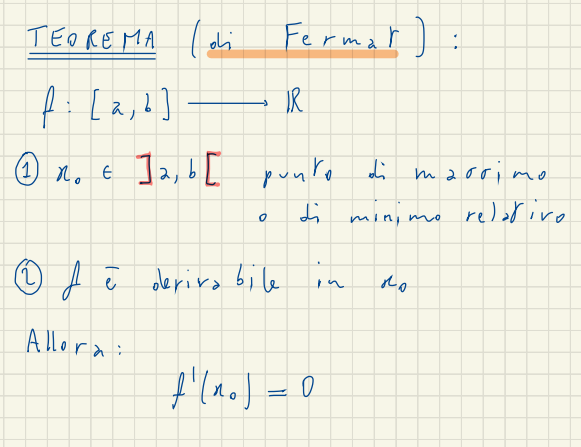 TEOREMA (di Fermat):
f: [a, b] ⟶ ℝ
① x₀ ∈ ]a, b[ punto di massimo
o di minimo relativo
② f è derivabile in x₀
Allora:
f'(x₀) = 0